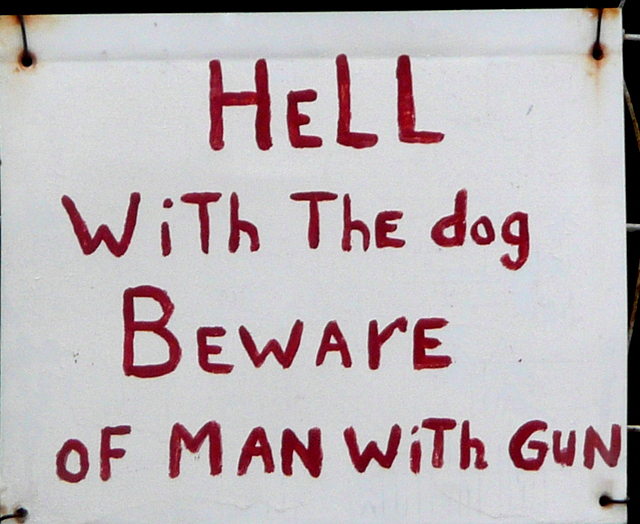 HeLL
WiTh The dog
BEWArE
OF MAN WiTh GUN